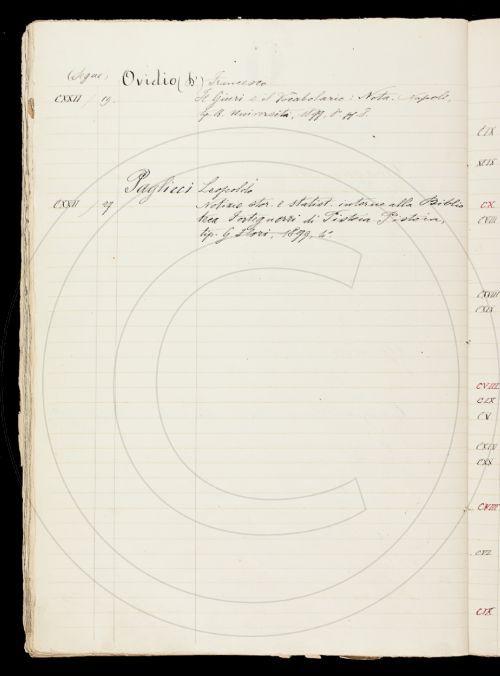 (Segue) Ovidio (D') Francesco
CXXII / 19. Il Giurì e il Vocabolario: Nota. Napoli,
tip. R. Università, 1899, 8° pg 8.
CIX
XCIX
Paglicci Leopoldo
CXXII / 27 Notizie stor. e statist. intorno alla Biblio
CX.
teca Forteguerri di Pistoia Pistoia,
CVIII
tip. G. Flori, 1899, 4°
CXVIII
CXIX
CVIII
CLX
CV
CXIX
CXX
CXVIII
CVI
CIX
C